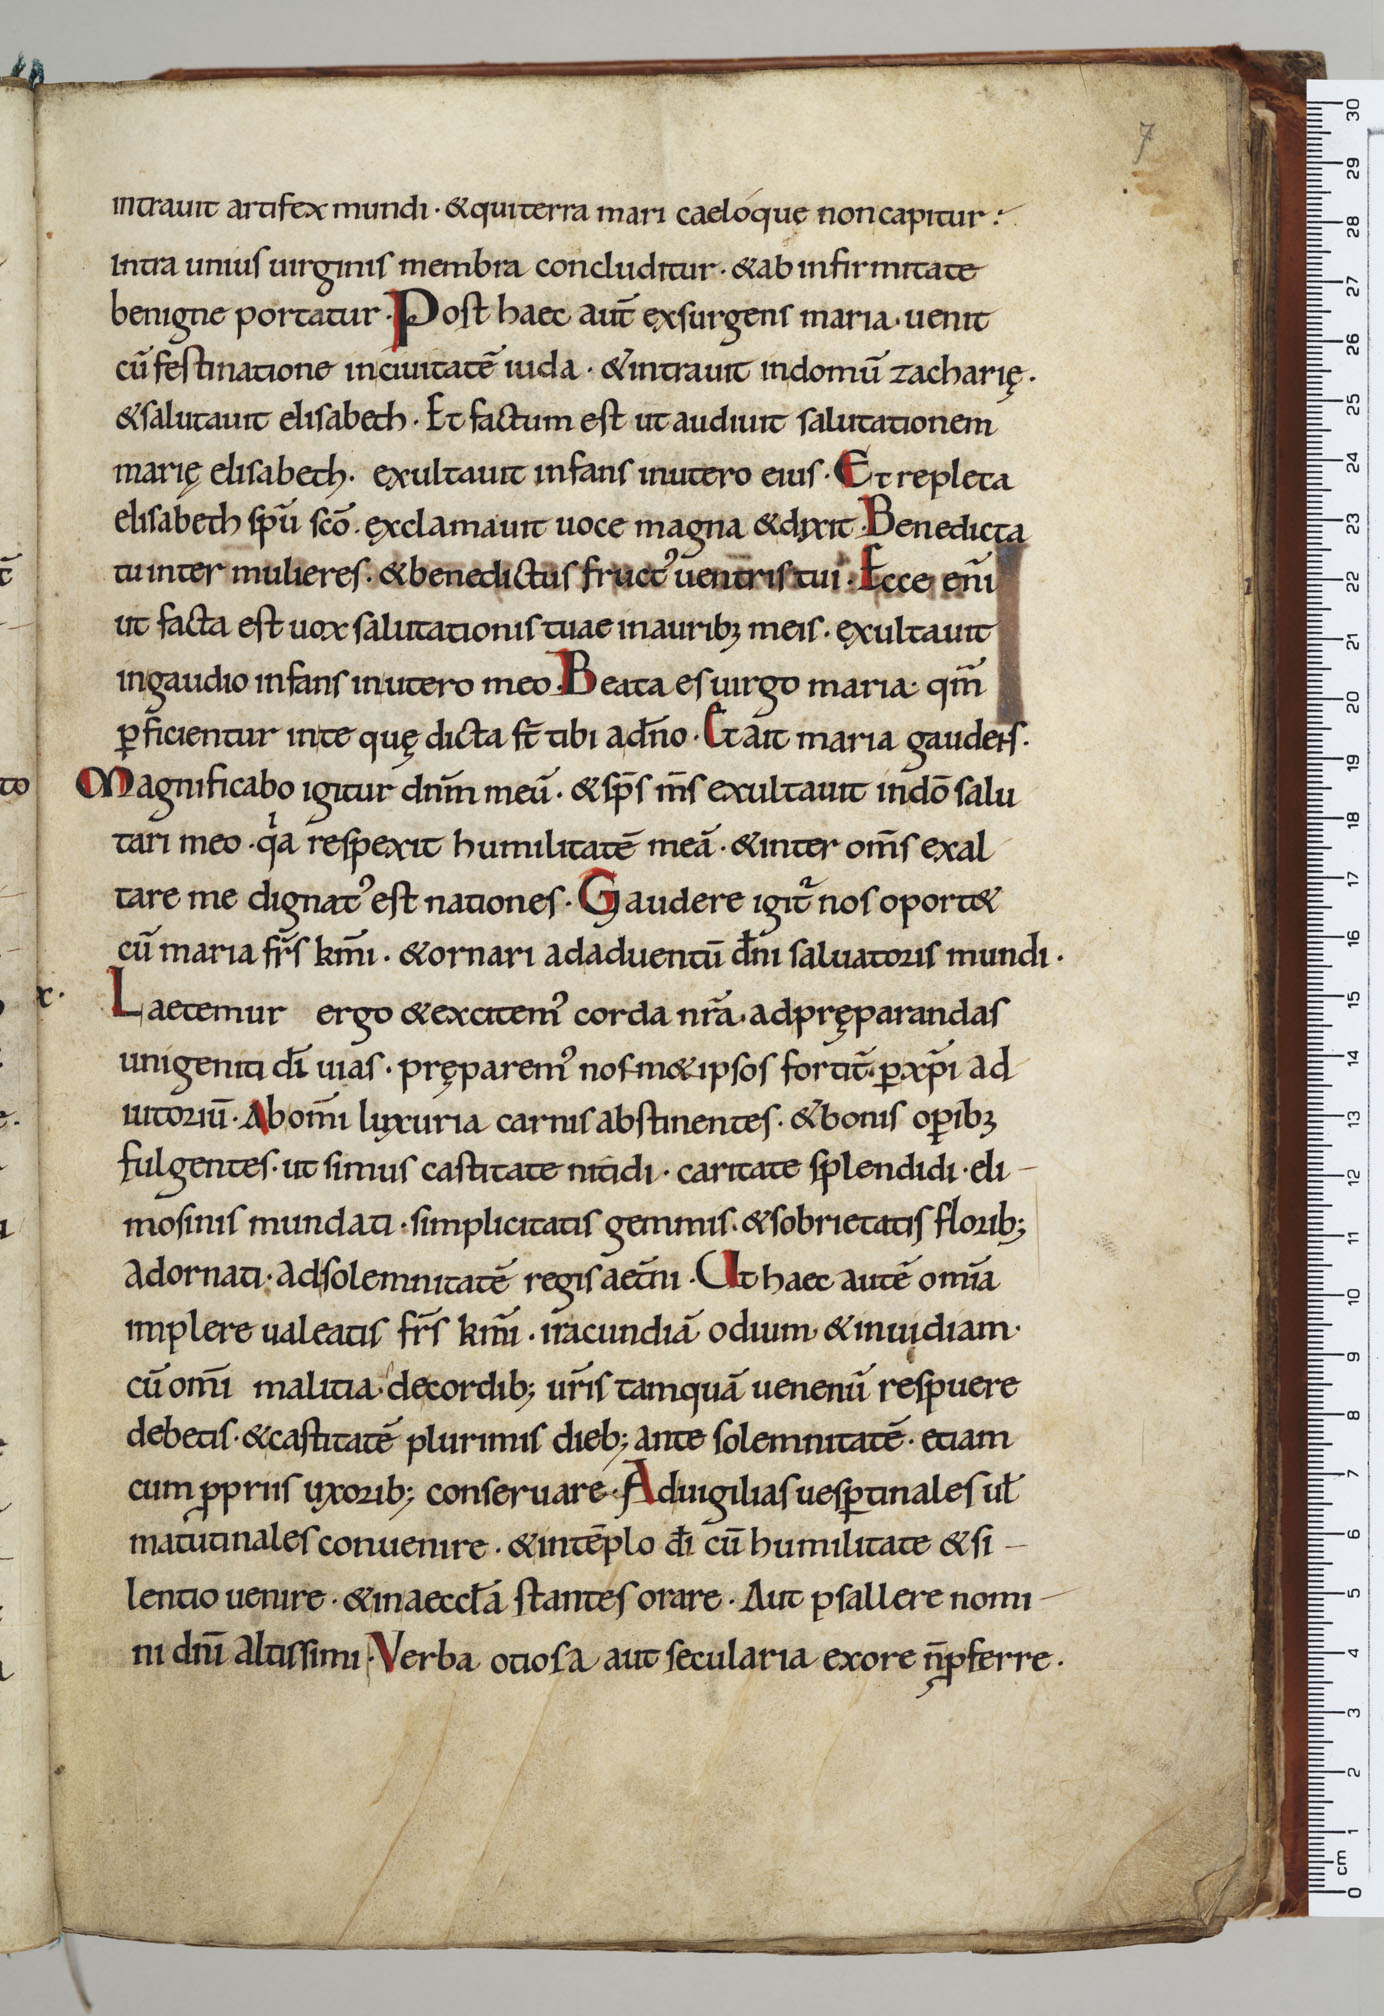 7
intrauit artifex mundi · & qui terra mari caelóque non capitur :
Intra unius uirginis membra concluditur · & ab infirmitate
benigne portatur · Post haec aut̄ exsurgens maria · uenit
cū festinatione in ciuitatē iuda · & intrauit in domū zacharię ·
& salutauit elisabeth · Et factum est ut audiuit salutationem
marię elisabeth · exultauit infans in utero eius · Et repleta
elisabeth sp̄u sc̄o · exclamauit uoce magna & dixit · Benedicta
tu inter mulieres · & benedictus fruct᾿ uentris tui · Ecce eni̅
ut facta est uox salutationis tuae in aurib; meis · exultauit
in gaudio infans in utero meo · Beata es uirgo maria · qm̅
ꝑficientur in te quę dicta st̄ tibi a dn̅o · Et ait maria gaudens ·
Magnificabo igitur dnm̅ meū · & sp̄s m̅s exultauit in dō salu
tari meo · qͥa respexit humilitatē meā · & inter om̅s exal
tare me dignat᾿ est nationes · Gaudere igit᷑ nos oport&
cū maria fr̅s km̅i · & ornari ad aduentū dn̅i saluatoris mundi ·
x · Laetemur ergo & excitem᾿ corda nr̅a · ad pręparandas
unigeniti dı̅ uias · pręparem᾿ nosm&ipsos fortit̅ · ꝑ xp̅i ad
iutoriū · Ab om̅i luxuria carnis abstinentes · & bonis oꝑib;
fulgentes · ut simus castitate nitidi · caritate splendidi · eli-
mosinis mundati · simplicitatis gemmis · & sobrietatis florib;
adornati · ad solemnitatē regis aet̅ni · Ut haec autē om̅ia
implere ualeatis fr̅s km̅i · iracundiā odium & inuidiam ·
cū om̅i malitia · de cordib; ur̅is tamquā uenenū respuere
debetis · & castitatē plurimis dieb; ante solemnitatē · etiam
cum ꝓpriis uxorib; conseruare · Ad uigilias uesꝑtinales uł
matutinales conuenire · & in tēplo dı̅ cū humilitate & si-
lentio uenire · & in aeccłā stantes orare · Aut psallere nomi-
ni dn̅i altissimi · Verba otiosa aut secularia ex ore n̅ ꝓferre ·